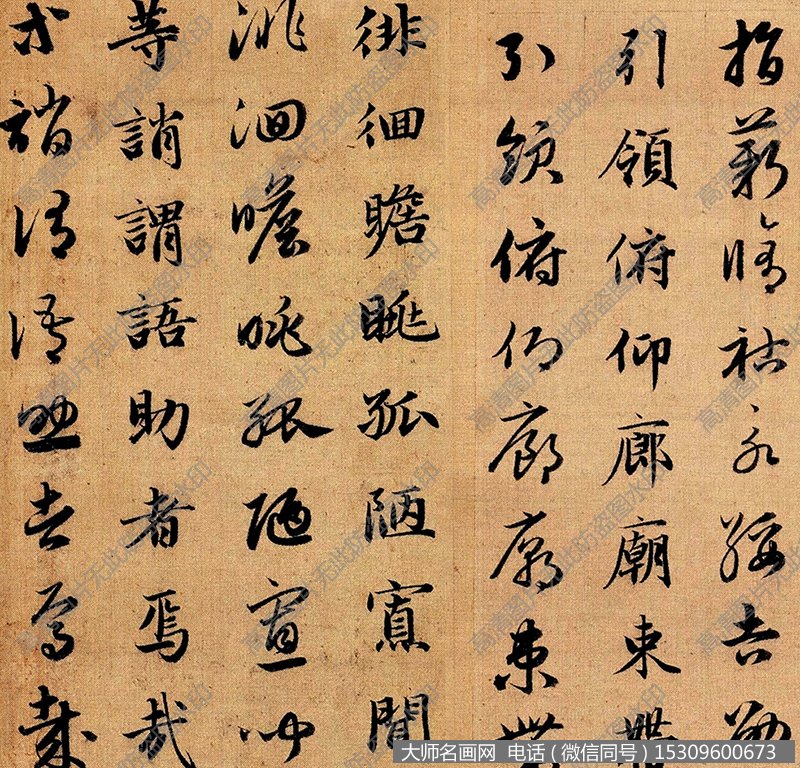 指薪脩祜永綏吉劭
引領俯仰廊廟束帶
引領俯仰廊廟束帶
徘徊瞻眺孤陋寡聞
徘徊瞻眺孤陋寡聞
等誚謂語助者焉哉
等誚謂語助者焉哉
高清图片无此防盗图水印
大师名画网 电话（微信同号）15309600673